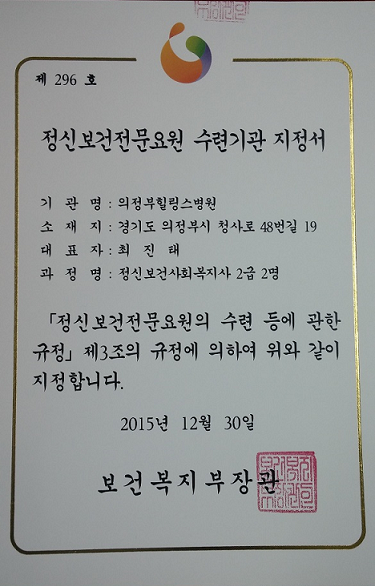 제 296 호
정신보건전문요원 수련기관 지정서
기 관 명 : 의정부힐링스병원
소 재 지 : 경기도 의정부시 청사로 48번길 19
대 표 자 : 최 진 태
과 정 명 : 정신보건사회복지사 2급 2명
「정신보건전문요원의 수련 등에 관한
규정」 제3조의 규정에 의하여 위와 같이
지정합니다.
2015년 12월 30일
보건복지부장관